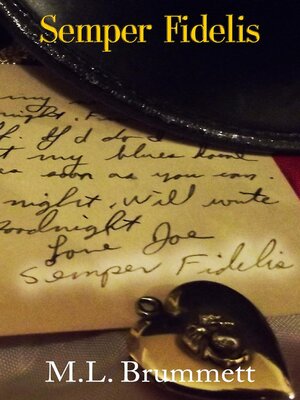 Semper Fidelis
my
night.
If I'd do
t my blues home
es soon as you can.
night, Will write
Goodnight
Love Joe
Semper Fidelis
M.L. Brummett